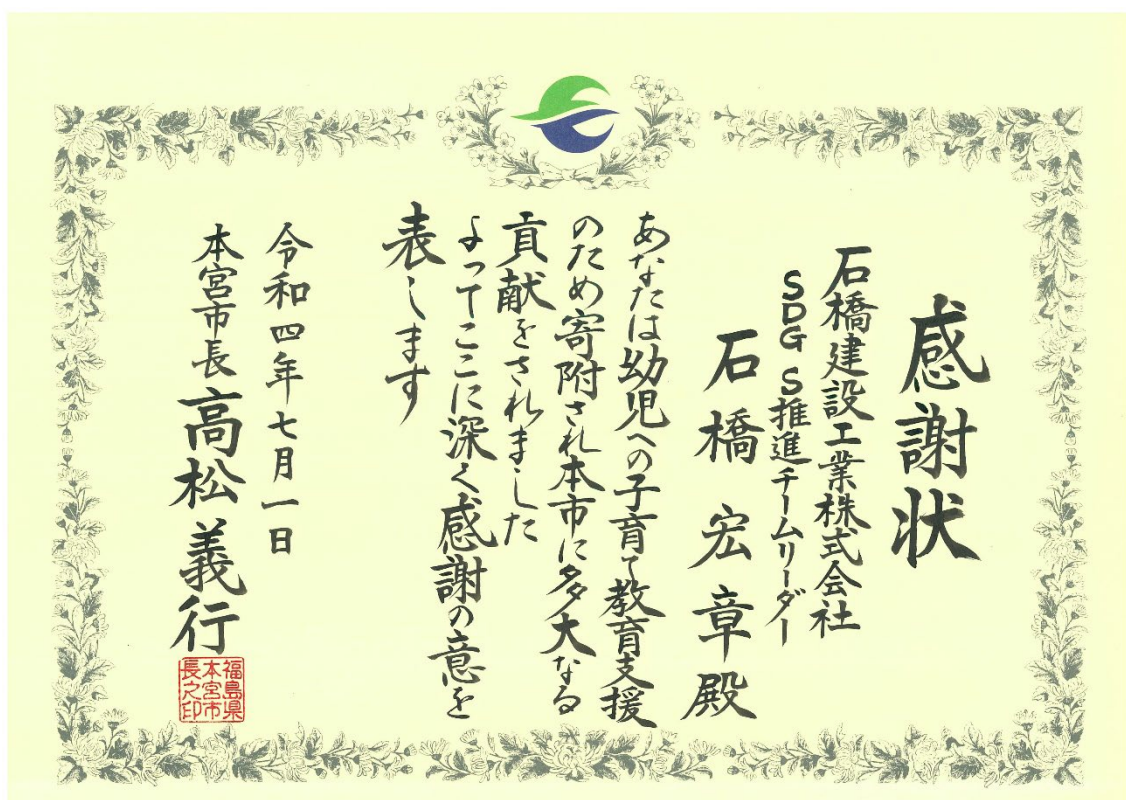 感謝状
石橋建設工業株式会社
SDGS推進チームリーダー
石橋宏章殿
あなたは幼児への子育て教育支援
のため寄附され本市に多大なる
貢献をされました
よってここに深く感謝の意を
表します
令和四年七月一日
本宮市長 高松義行
福島県
本宮市
長之印